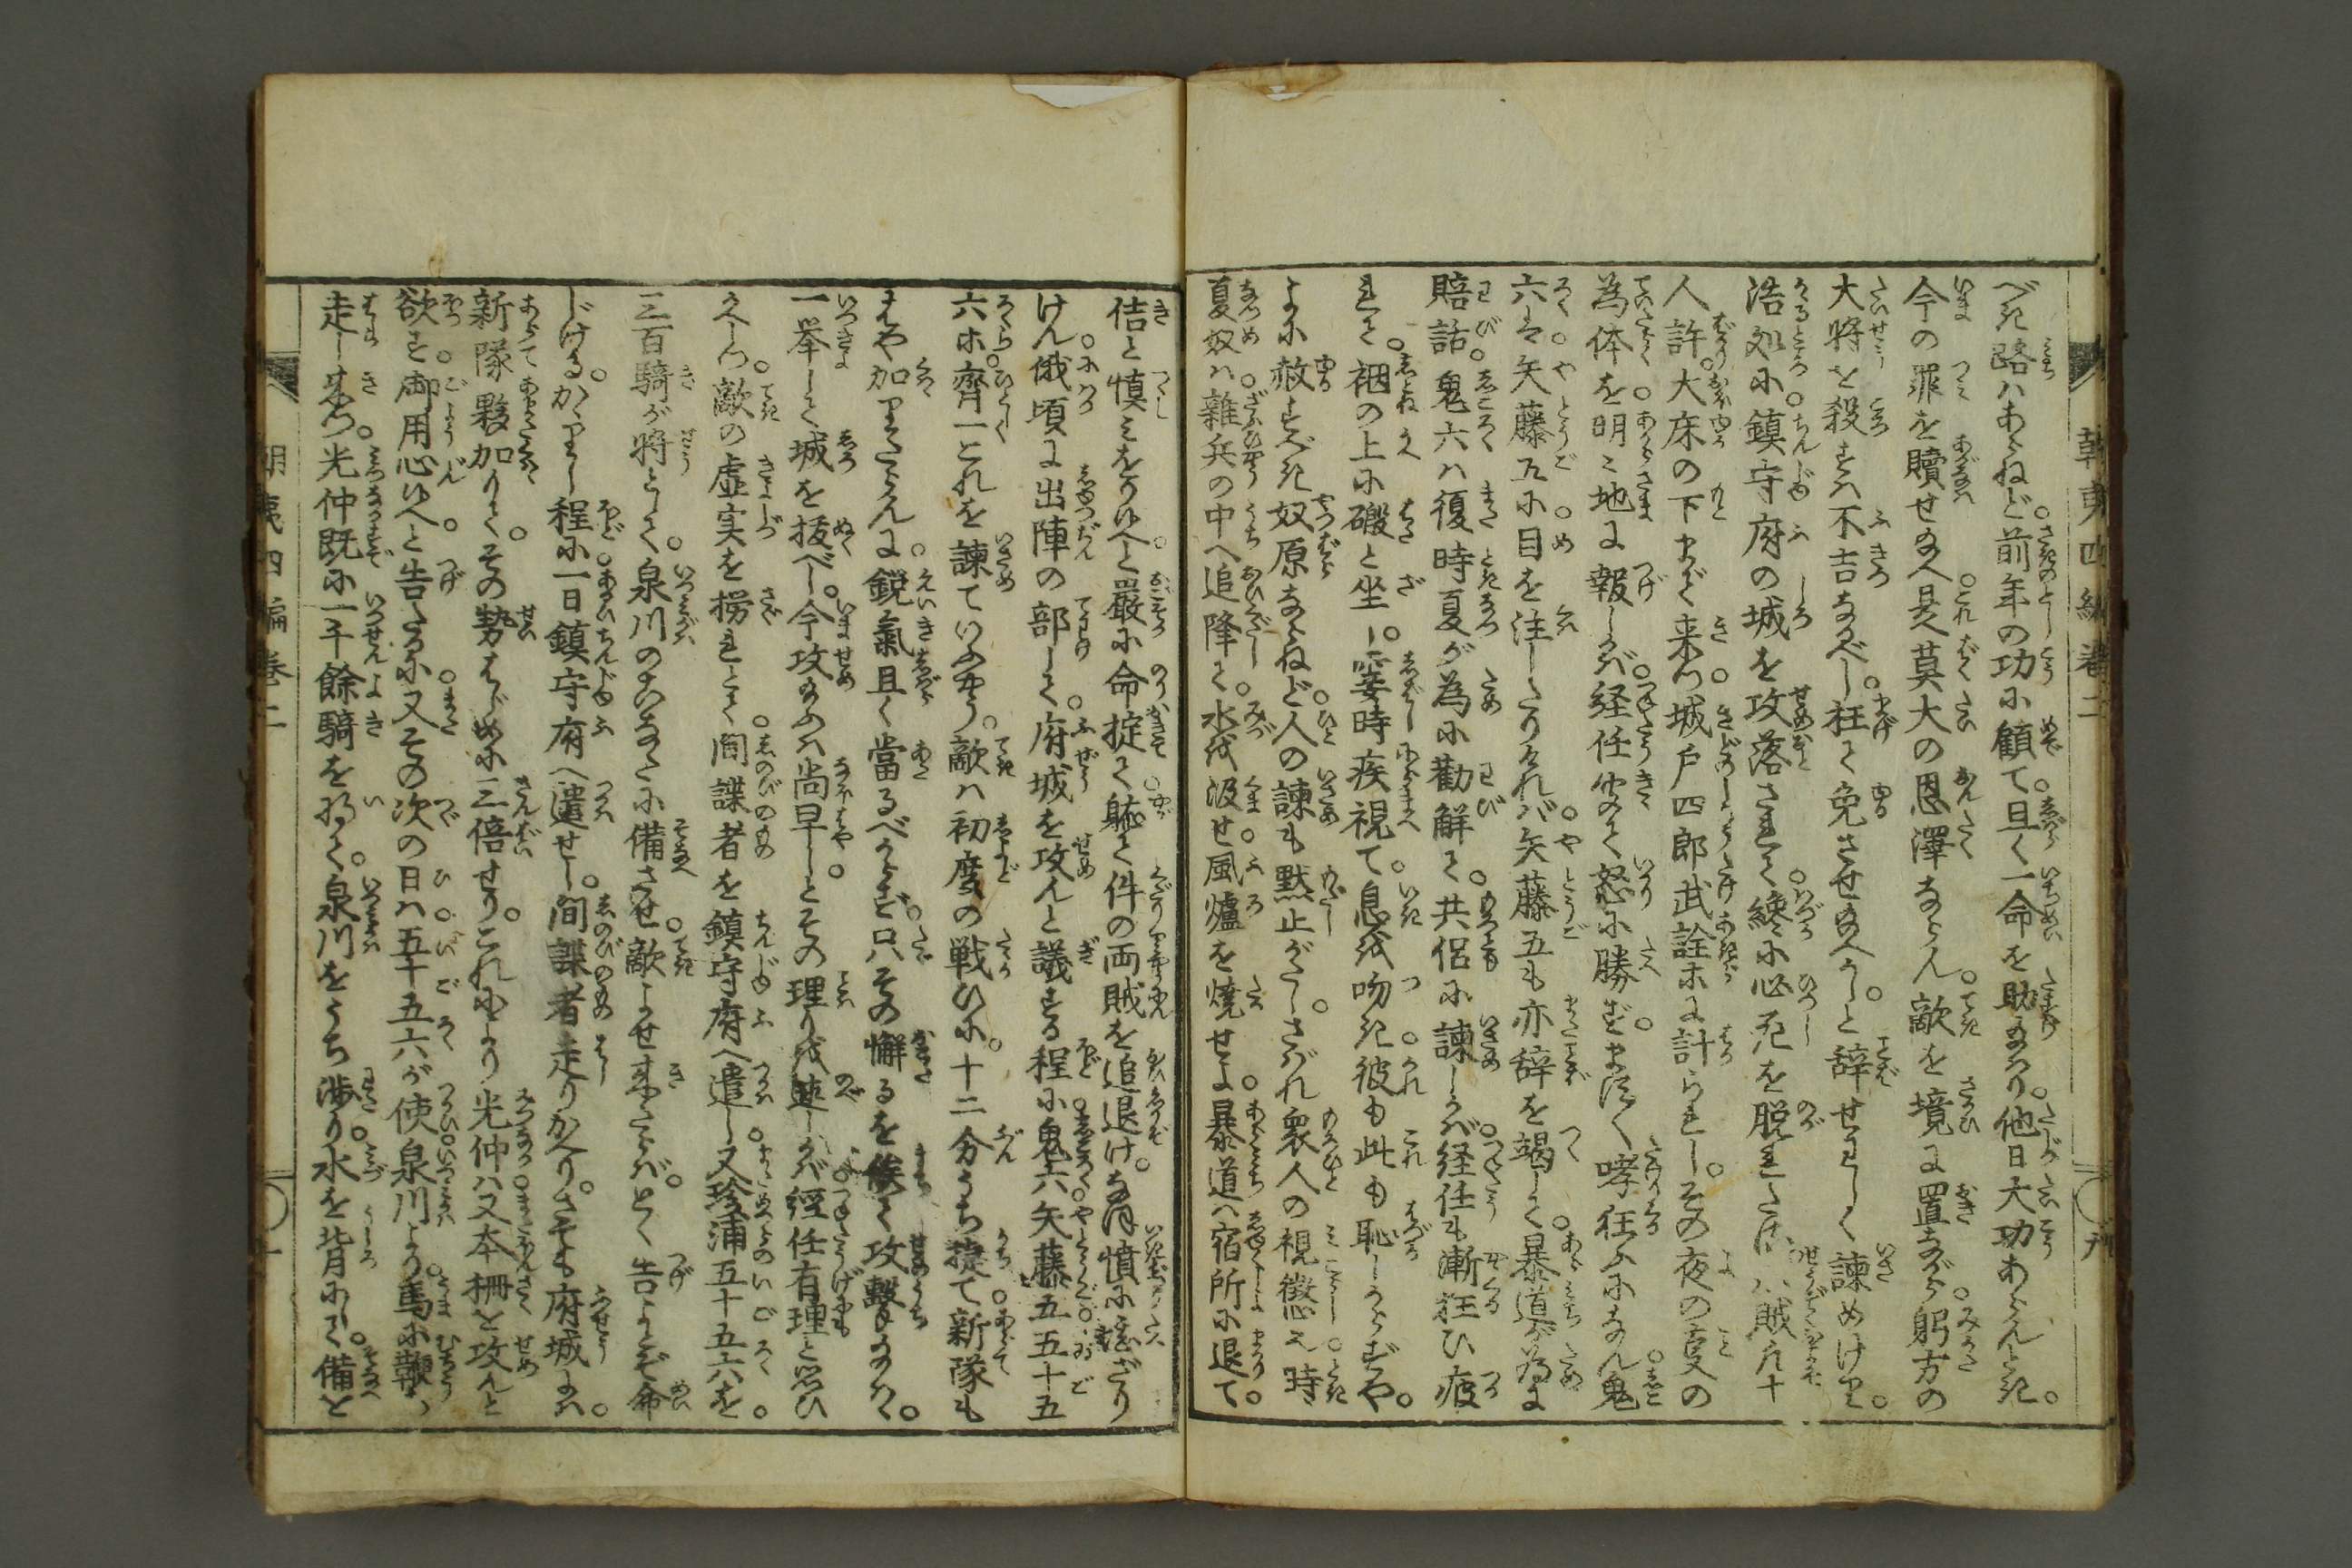 べき路はあらねど。前年の功に顧て。且く一命を助るなり。他日大功あらんとき。
今の罪を贖せ給へ。是莫大の恩澤ならん。敵を境に置ながら。躬方の
大将を殺すは不吉なるべし。枉て免させ給へかし。と辞せわしく諫めけり。
浩処に。鎮守府の城を攻落されて。纔に必死を脱れたる。賊兵十
人許。大床の下まで来つ。城戸四郎武詮等に計られし。その夜の事の
為体を。明々地に報しかば。経任聞て怒に勝ず。ます〳〵哮狂ふになん。鬼
六は。矢藤五に。目を注したりければ。矢藤五も亦辞を竭して。暴道が為に
賠話。鬼六は復時夏が為に勧解て。共侶に諫しかば。経任も漸狂ひ疲
れて。裀の上に礑と坐し。霎時疾視て。息を吻き。彼も此も恥しからずや。
よに赦すべき奴原ならねど。人の諫も黙止がたし。さばれ衆人の視懲之。時
夏奴は。雑兵の中へ追降して。水を汲せ。風爐を焼せよ。暴道は宿所に退て。
佶と慎みをり候へ。と厳に命掟て。軈て件の両賊を追退け。なほ憤に
けん。俄頃に出陣の部して。府城を攻んと議する程に。鬼六矢藤五五十五
六等。齊一これを諫ていふやう。敵は初度の戦ひに。十二分うち捷て。新隊も
はや加りたらんに。鋭氣且く當るべからず。只その懈るを俟て攻撃給はゞ。
一挙して城を抜べし。今攻給ふは尚早し。とその理りを述しかば。經任有理と思ひ
かへしつ。敵の虚実を撈れとて。間諜者を鎮守府へ遣し。又珍浦五十五六を。
三百騎が将として。泉川のこなたに備させ。敵よせ来たらば。とく告よとぞ命
じける。かゝりし程に。一日鎮守府へ遣せし。間諜者走りかへり。さても府城には。
新隊夥加りて。その勢はじめに三倍せり。これにより光仲は。又本柵を攻んと
欲す。御用心候へ。と告るに。又その次の日は。五十五六が使。泉川より。馬に鞭
走し来つ。光仲既に一千餘騎を将て。泉川をうち渉り。水を背にして。備を
朝夷四編巻二